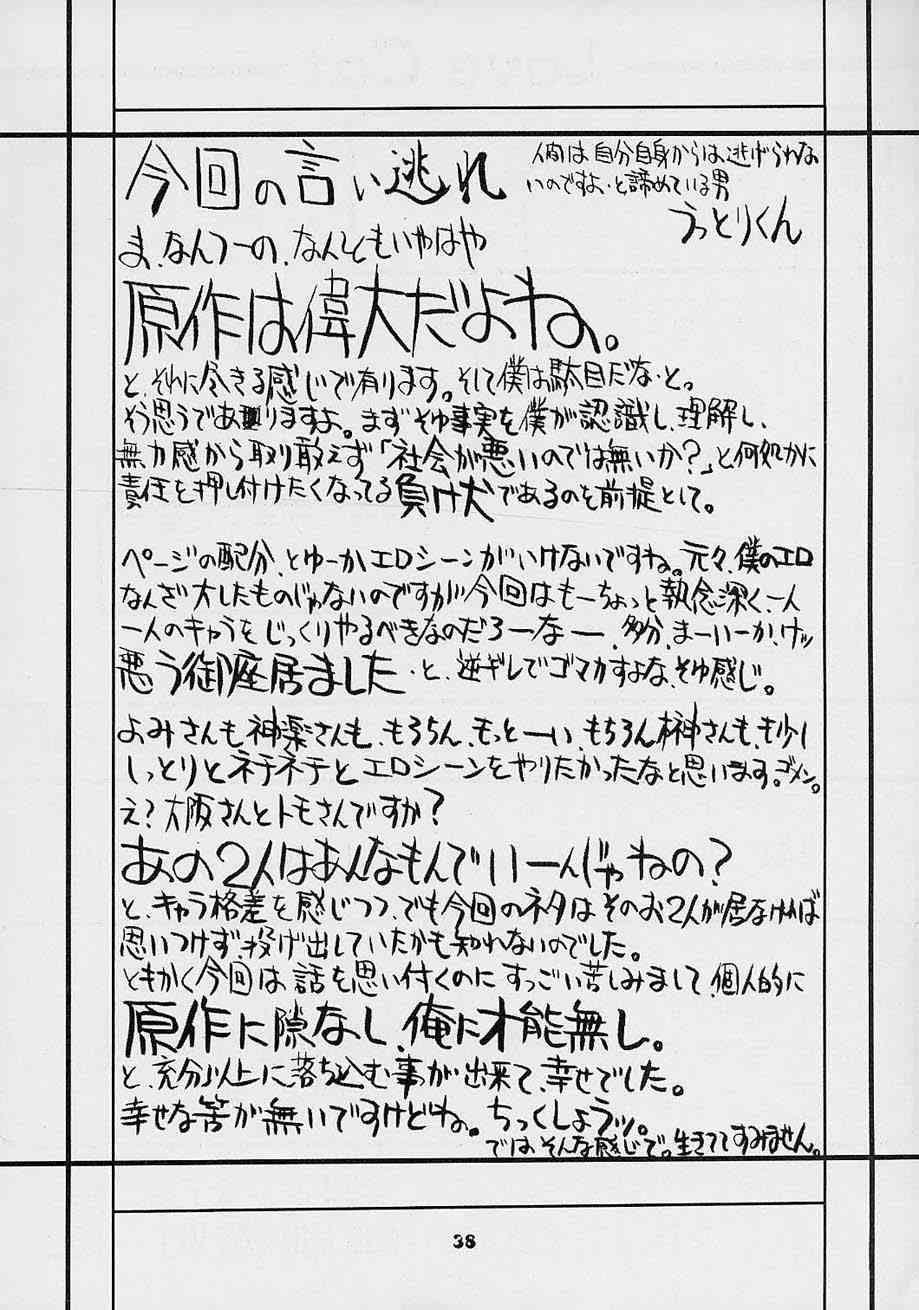 今回の言い逃れ
人間は自分自身からは逃げられな
いのですよ・と諦めている男
うっとりくん
ま、なんつーの、なんともいやはや
原作は偉大だよね。
と、それに尽きる感じで有ります。そして僕は駄目だな・と。
そう思うであリますよ。まずそゆ事実を僕が認識し、理解し、
無力感から取り敢えず「社会が悪いのでは無いか?」と何処かに
責任を押し付けたくなってる負け犬であるのを前提として。
ページの配分、とゆーかエロシーンがいけないですね。元々、僕のエロ
なんざ大したものじゃないのですが今回はもーちょっと執念深く、一人
一人のキャラをじっくりやるべきなのだろーなー、多分、まーいーか、ケッ
悪う御座居ました・と、逆ギレでゴマカすよな、そゆ感じ。
よみさんも神楽さんも、もろちん、もっとーい、もちろん榊さんも、も少し
しっとりとネチネチとエロシーンをやりたかったなと思います。ゴメン。
え?大阪さんとトモさんですか?
あの2人はあんなもんでいーんじゃねの?
と、キャラ格差を感じつつ、でも今回のネタはそのお2人が居なければ
思いつけず、投げ出していたかも知れないのでした。
ともかく今回は話を思い付くのにすっごい苦しみまして、個人的に
原作に隙なし、俺に才能無し。
と、充分以上に落ち込む事が出来て、幸せでした。
幸せな筈が無いですけどね。ちっくしょうッ。
では、そんな感じで。生きててすみません。
38